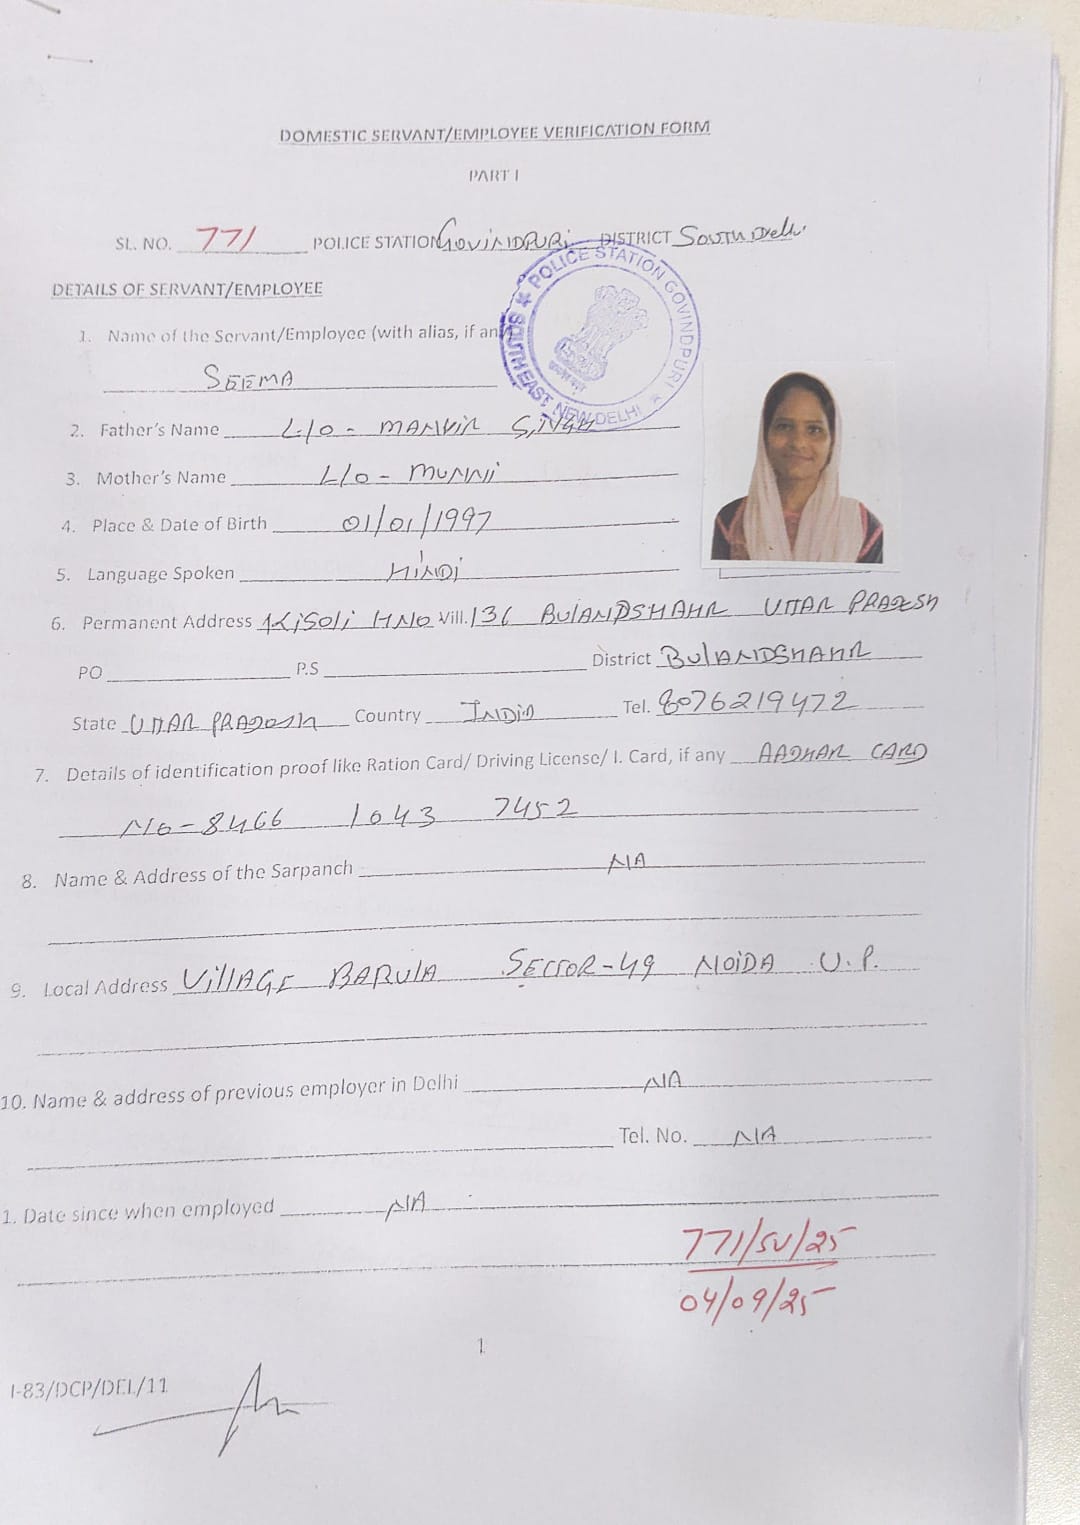 DOMESTIC SERVANT/EMPLOYEE VERIFICATION FORM
PART I
SL. NO. 771 POLICE STATION GOVINDPURI DISTRICT SOUTH Delhi
POLICE STATION GOVINDPURI
SOUTH EAST NEW DELHI
DETAILS OF SERVANT/EMPLOYEE
1. Name of the Servant/Employee (with alias, if an
SEEMA
2. Father's Name L/O - MANVIR SINGH
3. Mother's Name L/O - MUNNI
4. Place & Date of Birth 01/01/1997
5. Language Spoken HINDI
6. Permanent Address KISOLI HNO Vill. 136 BULANDSHAHR UTTAR PRADESH
PO P.S District BULANDSHAHR
State UTTAR PRADESH Country INDIA Tel. 8076219472
7. Details of identification proof like Ration Card/ Driving License/ I. Card, if any AADHAR CARD
No-8466 1043 7452
8. Name & Address of the Sarpanch NA
9. Local Address VILLAGE BARULA SECTOR-49 NOIDA U.P.
10. Name & address of previous employer in Delhi NA
Tel. No. NA
1. Date since when employed NA
771/SV/25
04/09/25
1
I-83/DCP/DEL/11